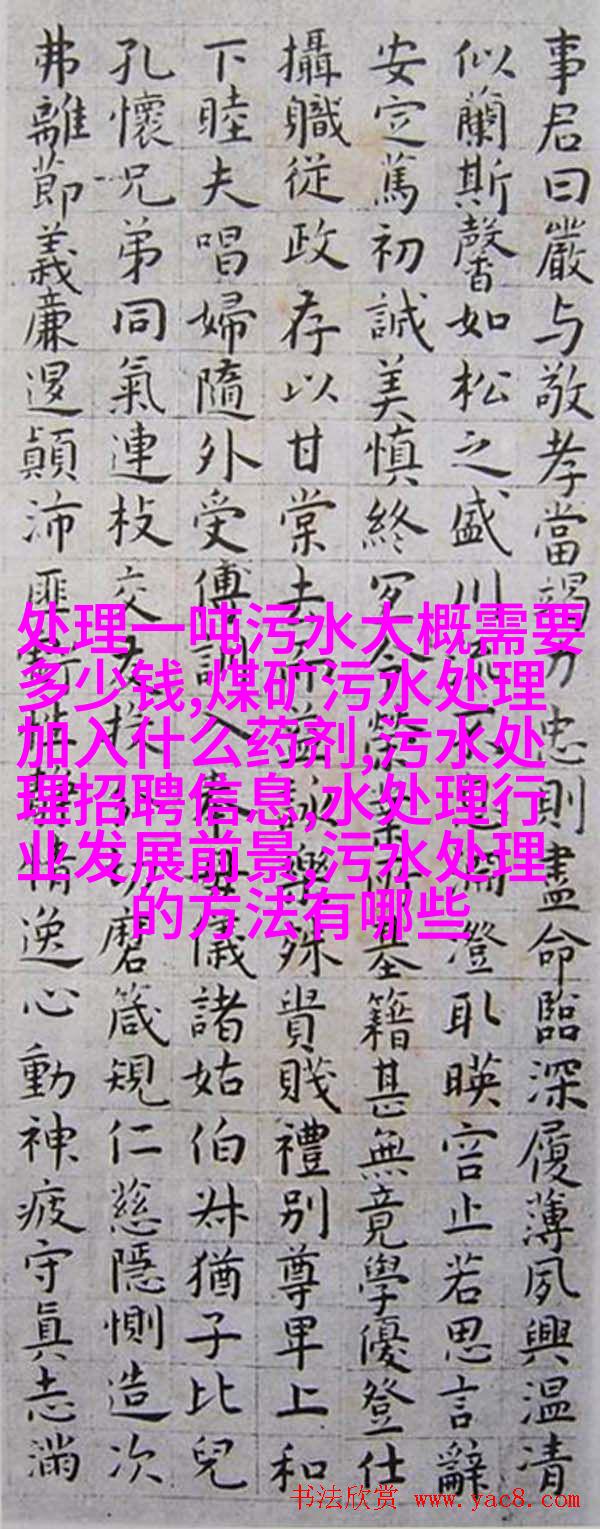 事君曰嚴与敬孝當竭力忠則盡命臨深履薄夙興温凊
似蘭斯馨如松之盛川流不息淵澄取暎容止若思言辭
安定篤初誠美慎終冝令榮業所基籍甚無竟學優登仕
攝職從政存以甘棠去而益詠樂殊貴賤禮別尊卑上和
下睦夫唱婦隨外受傅訓入奉母儀諸姑伯叔猶子比兒
孔懷兄弟同氣連枝交友投分切磨箴規仁慈隱惻造次
弗離節義廉退顛沛匪虧性靜情逸心動神疲守真志滿
处理一吨污水大概需要
多少钱,煤矿污水处理
加入什么药剂,污水处
理招聘信息,水处理行
业发展前景,污水处理
的方法有哪些
书法欣赏 www.yac8.com